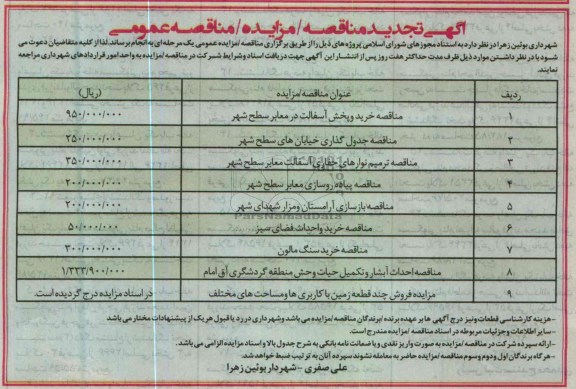 آگهی تجدید مناقصه/مزایده/مناقصه عمومی
شهرداری بوئین زهرا در نظر دارد به استناد مجوزهای شورای اسلامی پروژه های ذیل را از طریق برگزاری مناقصه/مزایده عمومی یک مرحله ای به انجام برساند. لذا از کلیه متقاضیان دعوت می
شود با در نظر داشتن موارد ذیل ظرف مدت حداکثر هفت روز پس از انتشار این آگهی جهت دریافت اسناد و شرایط شرکت در مناقصه/مزایده به واحد امور قراردادهای شهرداری مراجعه
نمایند.
ردیف عنوان مناقصه/مزایده (ریال)
۱ مناقصه خرید و پخش آسفالت در معابر سطح شهر ۹۵۰/۰۰۰/۰۰۰
۲ مناقصه جدول گذاری خیابان های سطح شهر ۲۵۰/۰۰۰/۰۰۰
۳ مناقصه ترمیم نوارهای حفاری آسفالت معابر سطح شهر ۳۵۰/۰۰۰/۰۰۰
۴ مناقصه پیاده روسازی معابر سطح شهر ۲۰۰/۰۰۰/۰۰۰
۵ مناقصه بازسازی آرامستان ومزار شهدای شهر ۲۰۰/۰۰۰/۰۰۰
ParsNamadData
۶ مناقصه خرید واحداث فضای سبز ۵۰/۰۰۰/۰۰۰
۷ مناقصه خرید سنگ مالون ۳۰۰/۰۰۰/۰۰۰
۸ مناقصه احداث آبشار و تکمیل حیات وحش منطقه گردشگری آق امام ۱/۳۳۳/۹۰۰/۰۰۰
۹ مزایده فروش چند قطعه زمین با کاربری ها ومساحت های مختلف در اسناد مزایده درج گردیده است.
- هزینه کارشناسی قطعات ونیز درج آگهی ها بر عهده برنده /برندگان مناقصه /مزایده می باشد وشهرداری در رد یا قبول هریک از پیشنهادات مختار می باشد
- سایر اطلاعات وجزئیات مربوطه در اسناد مناقصه /مزایده مندرج است.
- ارائه سپرده شرکت در مناقصه/مزایده به صورت واریز نقدی ویا ضمانت نامه بانکی به شرح جدول بالا و اسناد مزایده الزامی می باشد.
- هرگاه برندگان اول ودوم وسوم مناقصه/مزایده حاضر به معامله نشوند سپرده آنان به ترتیب ضبط خواهد شد.
علی صفری - شهردار بوئین زهرا